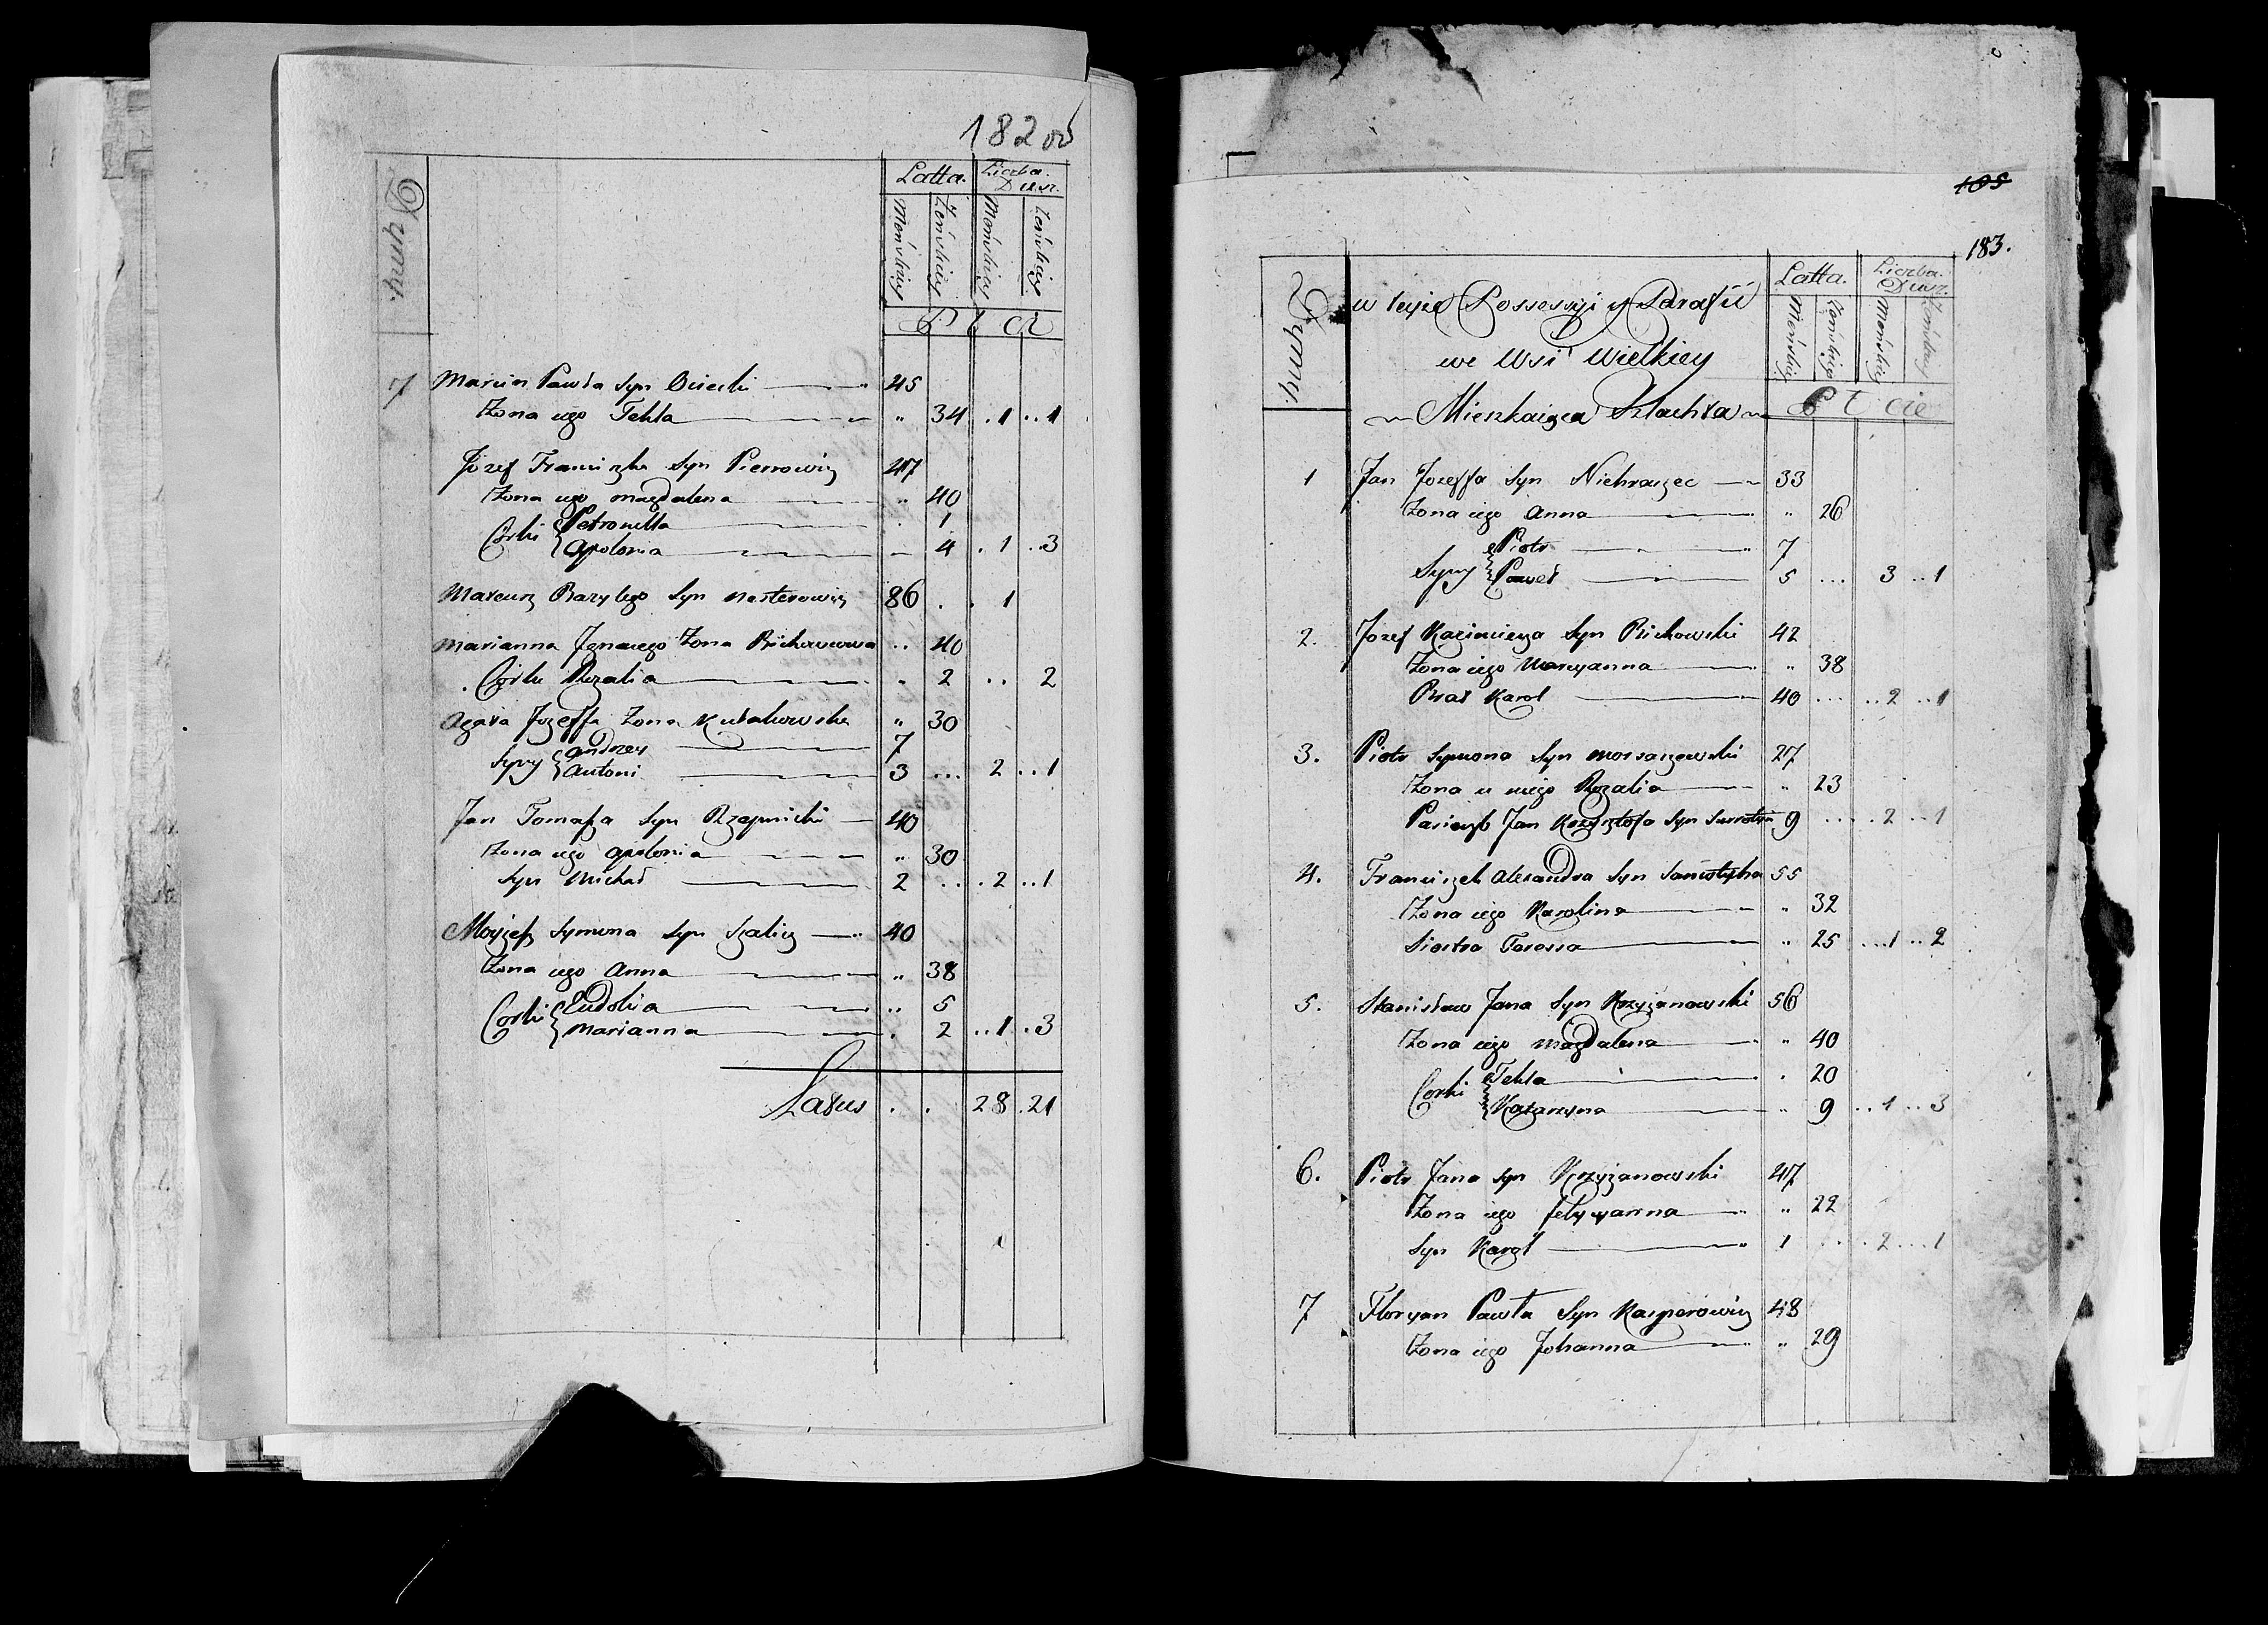 182 об
Dymy.
Latta. Liczba Dusz.
Męńskiey Żeńskiey Męńskiey Żeńskiey
P ł ci
7 Marcin Pawła Syn Osiecki 45
Żona iego Tekla " 34 . 1 .. 1
Jozef Franciszka Syn Pierrowicz 47
Żona iego Magdalena " 40
Corki Petronella . 1
Apolonia 4 . 1 .. 3
Mateusz Bazylego Syn Nesterowicz 86 . . 1
Marianna Ignacego Żona Bichowcowa .. 40
Corka Rozalia " 2 .. 2
Agata Jozeffa Żona Kułakowska " 30
Syny Andrzey 7
Antoni 3 ... 2 .. 1
Jan Tomasza Syn Rzepnicki 40
Żona iego Apolonia " 30
Syn Michał 2 ... 2 .. 1
Moyżesz Symona Syn Szalicz 40
Żona iego Anna " 38
Corki Eudokia .. 5
Marianna . 2 .. 1 . 3
Latus . . 28 . 21
105
183.
Dymy.
w teyże Possessyi y Parafii
we Wsi Wielkiey
Mieszkaiąca Szlachta
Latta. Liczba Dusz.
Męńskiey Żeńskiey Męńskiey Żeńskiey
P ł cie
1 Jan Jozeffa Syn Niehraszec 33
Żona iego Anna " 26
Syny Piotr 7
Paweł 5 ... 3 .. 1
2. Jozef Kazimierza Syn Bichowski 42
Żona iego Maryanna " 38
Brat Karol 40 ... .. 2 .. 1
3. Piotr Symona Syn Morsaczewski 27
Żona u niego Rozalia " 23
Pasierzb Jan Krzysztofa Syn 9 ... . 2 .. 1
4. Franciszek Alexandra Syn 55
Żona iego Karolina " 32
Siostra Teressa " 25 ... 1 .. 2
5. Stanisław Jana Syn Krzyżanowski 56
Żona iego Magdalena " 40
Corki Tekla . 20
Katarzyna " 9 .. 1 .. 3
6. Piotr Jana Syn Krzyżanowski 47
Żona iego Felycyanna " 22
Syn Karol 1 ... . 2 ... 1
7 Floryan Pawła Syn Kasperowicz 48
Żona iego Johanna " 29